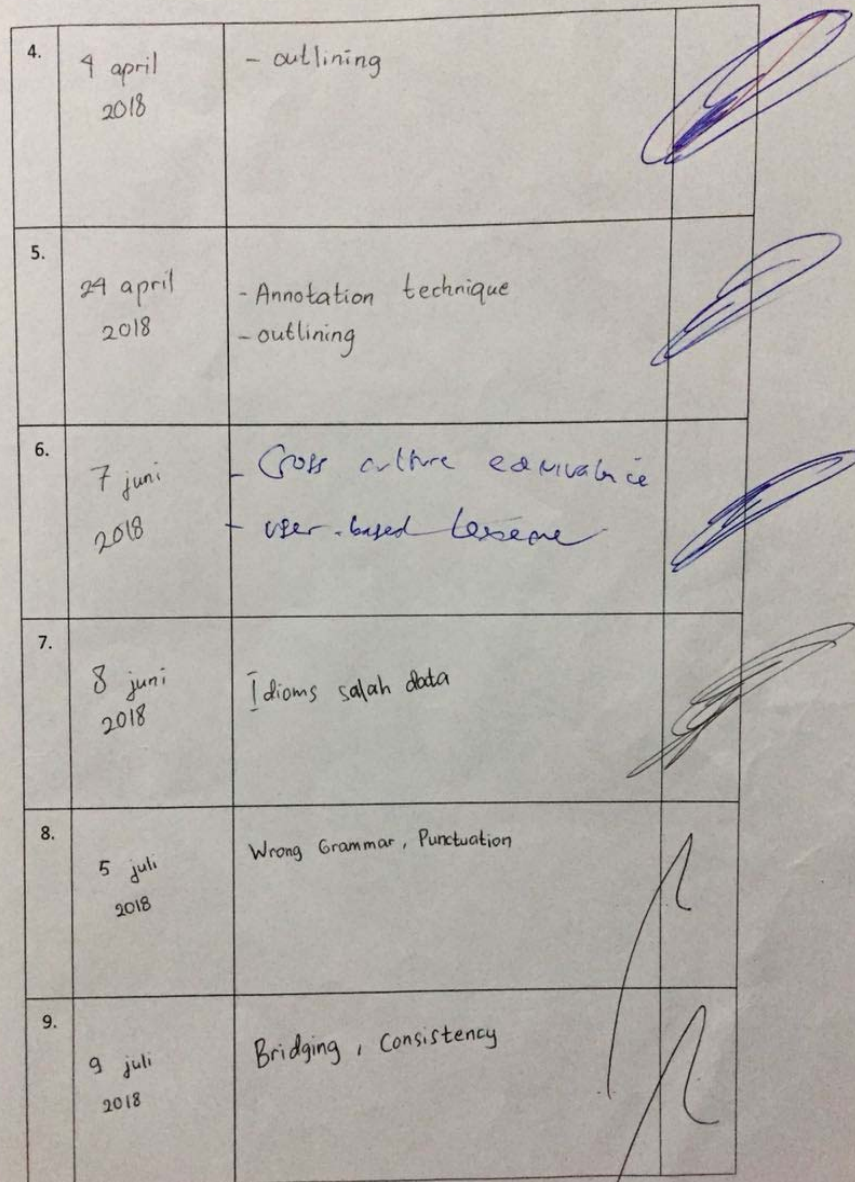 4.
4 april
2018
- outlining
5.
24 april
2018
- Annotation technique
- outlining
6.
7 juni
2018
- Cross culture equivalence
- user-based lexeme
7.
8 juni
2018
Idioms salah data
8.
5 juli
2018
Wrong Grammar, Punctuation
9.
9 juli
2018
Bridging, Consistency